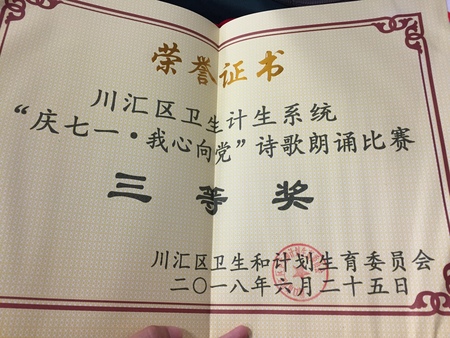 荣誉证书
川汇区卫生计生系统
“庆七一·我心向党”诗歌朗诵比赛
三等奖
川汇区卫生和计划生育委员会
二〇一八年六月二十五日